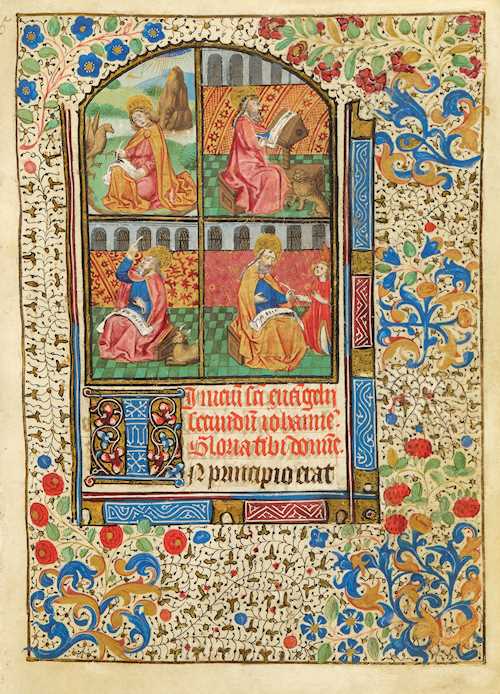 Iniciũ sc̃i euãgelii
secundũ iohannẽ
Gloria tibi domine.
IN principio erat